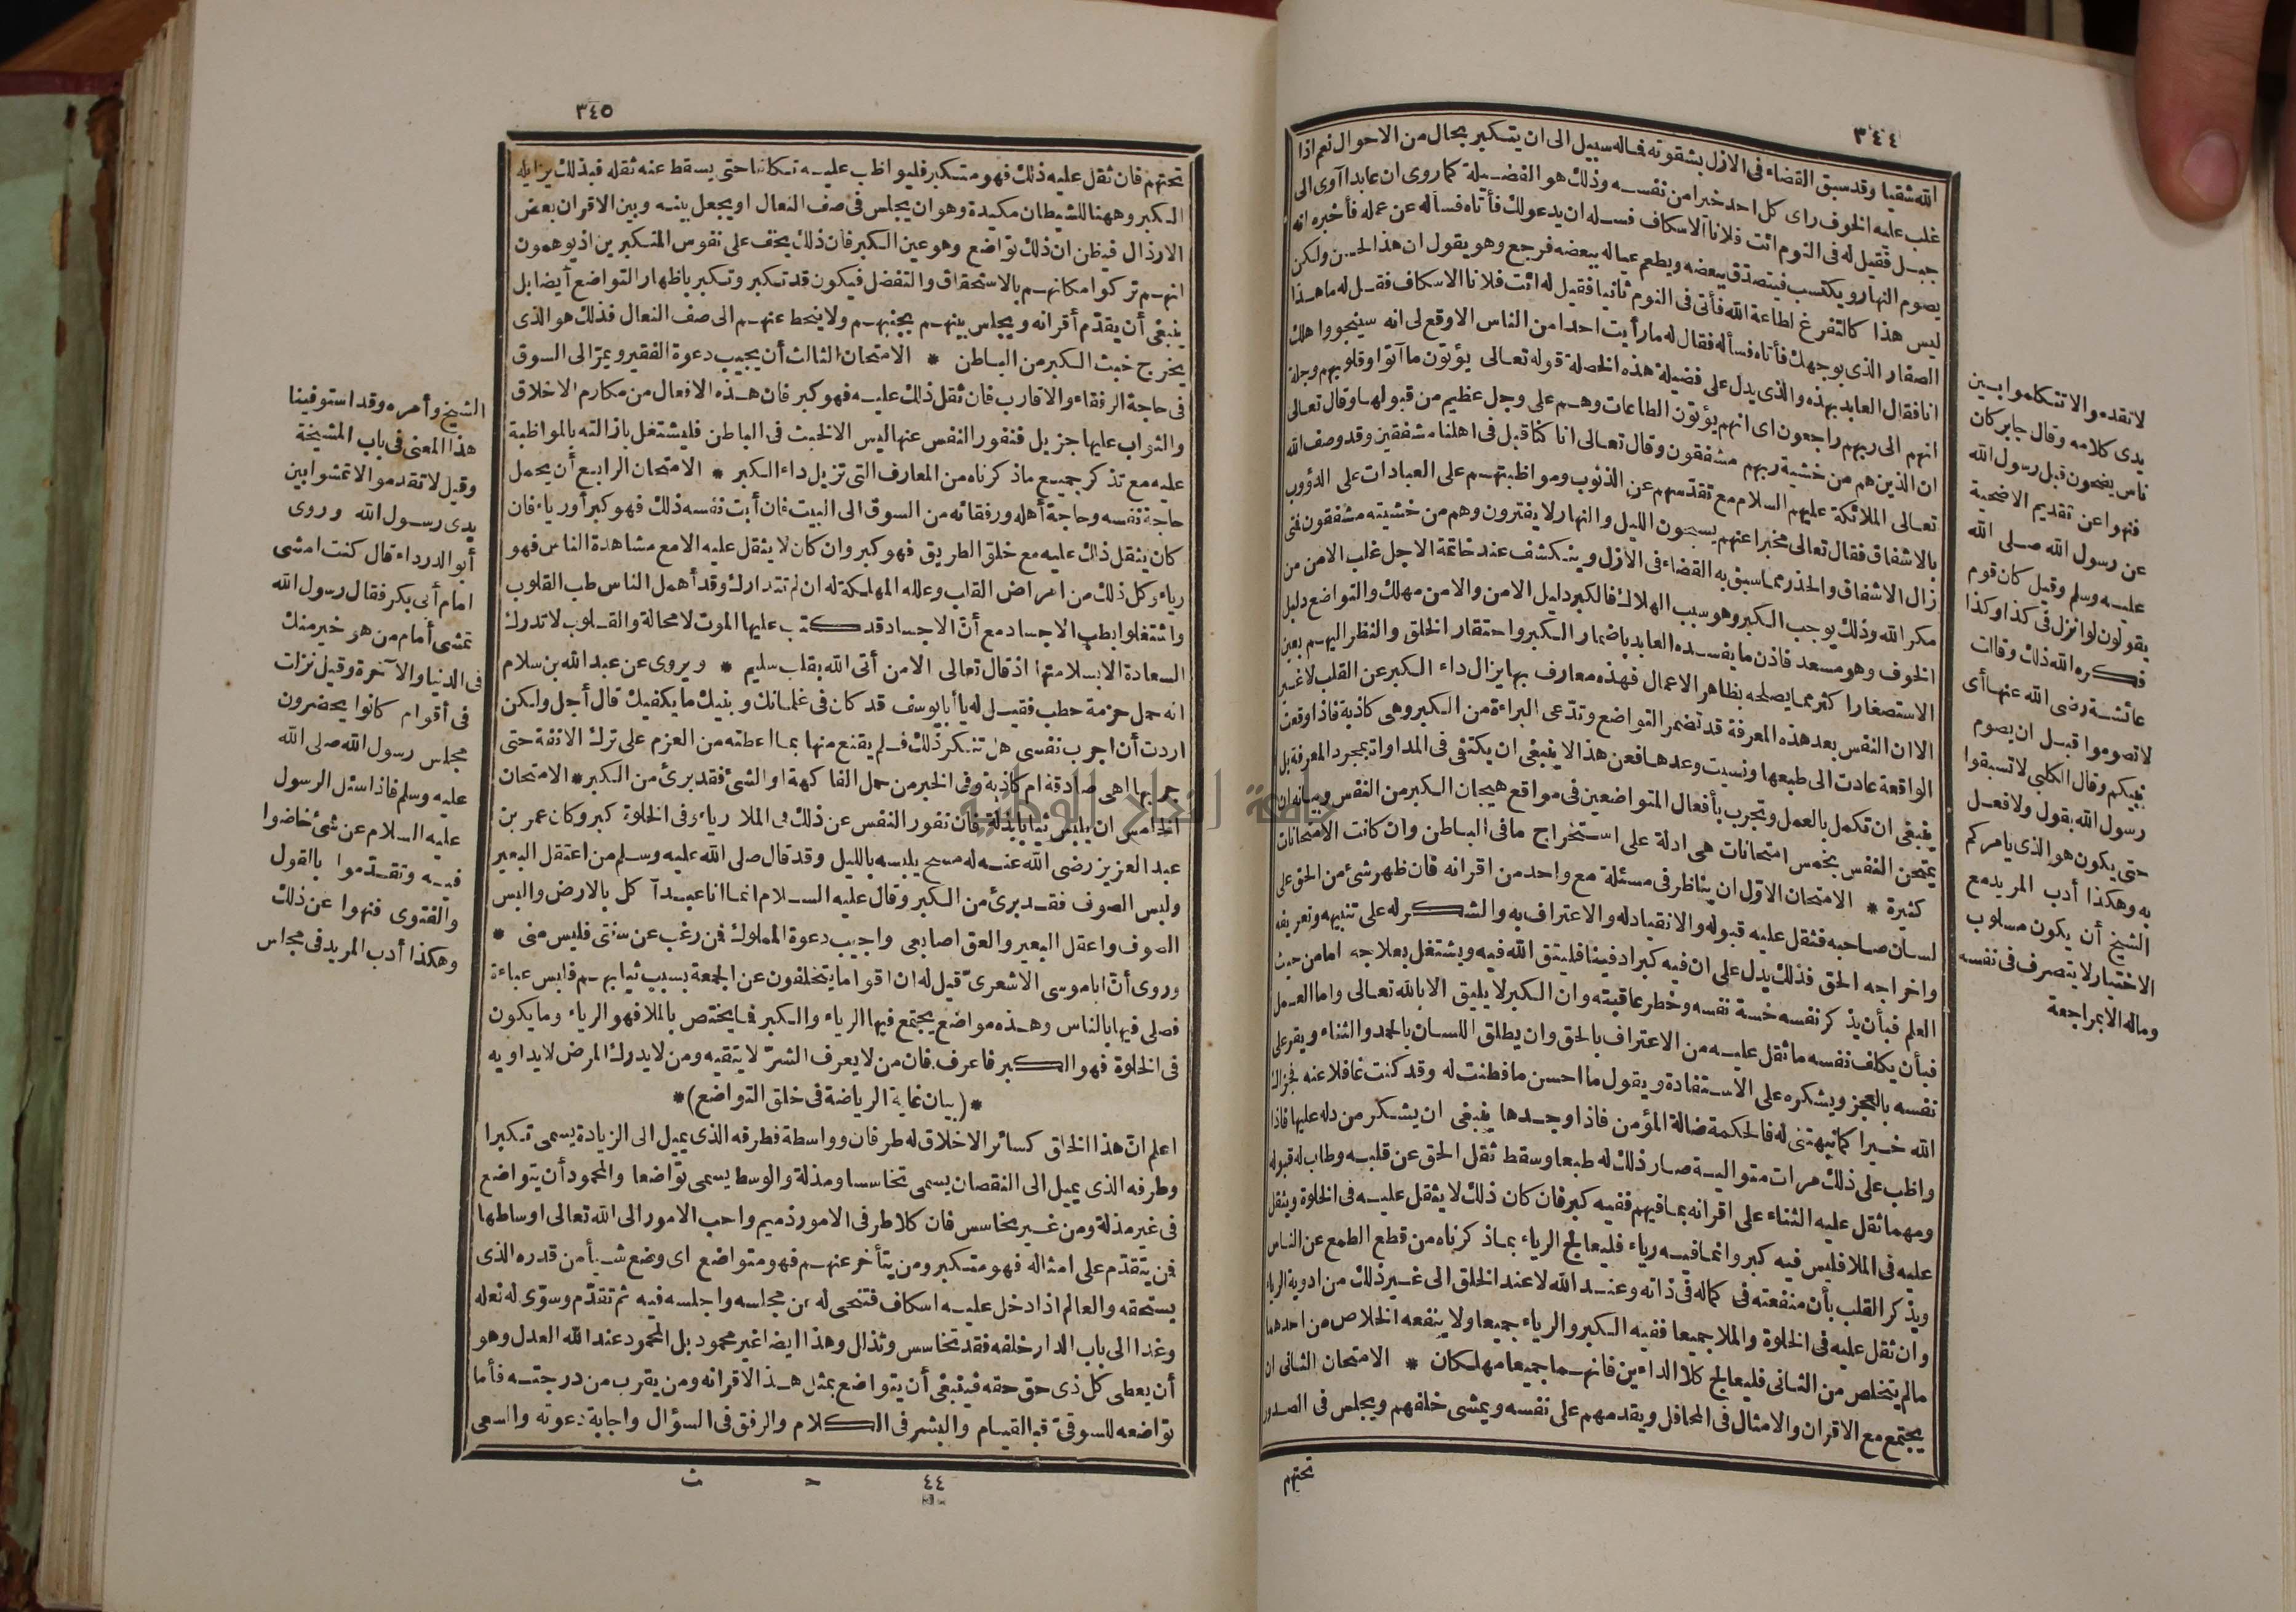 ٣٤٤
الله شقيا وقد سبق القضاء فى الازل بشقوته فماله سبيل الى ان يتكبر بحال من الاحوال نعم اذا
غلب عليه الخوف راى كل احد خيرا من نفسه وذلك هو الفضيلة كما روى ان عابدا آوى الى
جبل فقيل له فى النوم ائت فلانا الاسكاف فسله ان يدعولك فأتاه فسأله عن عمله فأخبره انه
يصوم النهار ويكتسب فيتصدق ببعضه ويطعم عياله ببعضه فرجع وهو يقول ان هذا لحسن ولكن
ليس هذا كالتفرغ لطاعة الله فأتى فى النوم ثانيا فقيل له ائت فلانا الاسكاف فقل له ما هذا
الصفار الذى بوجهك فأتاه فسأله فقال له مارأيت احدا من الناس الا وقع لى انه سينجو واهلك
انا فقال العابد بهذه والذى يدل على فضيلة هذه الخصلة قوله تعالى يؤتون ما آتوا وقلوبهم وجلة
انهم الى ربهم راجعون اى انهم يؤتون الطاعات وهم على وجل عظيم من قبولها وقال تعالى
ان الذين هم من خشية ربهم مشفقون وقال تعالى انا كنا قبل فى اهلنا مشفقين وقد وصف الله
تعالى الملائكة عليهم السلام مع تقدسهم عن الذنوب ومواظبتهم على العبادات على الدؤوب
بالاشفاق فقال تعالى مخبرا عنهم يسبحون الليل والنهار لا يفترون وهم من خشيته مشفقون فتى
زال الاشفاق والحذر مما سبق به القضاء فى الازل وينكشف عند خاتمة الاجل غلب الامن من
مكر الله وذلك يوجب الكبر وهو سبب الهلاك فالكبر دليل الامن والامن مهلك والتواضع دليل
الخوف وهو مسعد فاذن ما يفسده العابد باضمار الكبر واحتقار الخلق والنظر اليهم بعين
الاستصغار اكثر مما يصلحه بظاهر الاعمال فهذه معارف بها يزال داء الكبر عن القلب لا غير
الا ان النفس بعد هذه المعرفة قد تضمر التواضع وتدّعى البراءة من الكبر وهى كاذبة فاذا وقعت
الواقعة عادت الى طبعها ونسيت وعدها فعن هذا لا ينبغى ان يكتفى فى المداواة بمجرد المعرفة بل
ينبغى ان تكمل بالعمل وتجرب بأفعال المتواضعين فى مواقع هيجان الكبر من النفس وبيانه ان
يمتحن النفس بخمس امتحانات هى ادلة على استخراج مافى الباطن وان كانت الامتحانات
كثيرة * الامتحان الاوّل ان يناظر فى مسئلة مع واحد من اقرانه فان ظهر شئ من الحق على
لسان صاحبه فثقل عليه قبوله والانقياد له والاعتراف به والشكر له على تنبيهه وتعريفه
واخراجه الحق فذلك يدل على ان فيه كبرا دفينا فليتق الله فيه ويشتغل بعلاجه امامن حيث
العلم فبأن يذكر نفسه خسة نفسه وخطر عاقبته وان الكبر لا يليق الا بالله تعالى واما العمل
فبأن يكلف نفسه ما ثقل عليه من الاعتراف بالحق وان يطلق اللسان بالحمد والثناء ويقر على
نفسه بالعجز ويشكره على الاستفادة ويقول ما احسن ما فطنت له وقد كنت غافلا عنه فجزاك
الله خيرا كما نبهتنى له فالحكمة ضالة المؤمن فاذا وجدها ينبغى ان يشكر من دله عليها فاذا
واظب على ذلك مرات متوالية صار ذلك له طبعا وسقط ثقل الحق عن قلبه وطاب له قبوله
ومهما ثقل عليه الثناء على اقرانه بما فيهم ففيه كبر فان كان ذلك لا يثقل عليه فى الخلوة ويثقل
عليه فى الملا فليس فيه كبر وانما فيه رياء فليعالج الرياء بماذكرناه من قطع الطمع عن الناس
ويذكر القلب بأن منفعته فى كماله فى ذاته وعند الله لا عند الخلق الى غير ذلك من ادوية الرياء
وان ثقل عليه فى الخلوة والملا جميعا ففيه الكبر والرياء جميعا ولا ينفعه الخلاص من احدهما
مالم يتخلص من الثانى فليعالج كلا الداءين فانهما جميعا مهلكان * الامتحان الثانى ان
يجتمع مع الاقران والامثال فى المحافل ويقدمهم على نفسه ويمشى خلفهم ويجلس فى الصدور
تحتهم
لا تقدموا لا تتكلموا بين
يدى كلامه وقال جابر كان
ناس يضحون قبل رسول الله
فنهوا عن تقديم الاضحية
عن رسول الله صلى الله
عليه وسلم وقيل كان قوم
يقولون لو انزل فى كذا وكذا
فكره الله ذلك وقالت
عائشة رضى الله عنها أى
لا تصوموا قبل ان يصوم
نبيكم وقال الكلبى لا تسبقوا
رسول الله بقول ولا فعل
حتى يكون هو الذى يأمركم
به وهكذا أدب المريد مع
الشيخ أن يكون مسلوب
الاختيار لا يتصرف فى نفسه
وماله الا بمراجعة
٣٤٥
تحتهم فان ثقل عليه ذلك فهو متكبر فليواظب عليه تكلفا حتى يسقط عنه ثقله فبذلك يزايله
الكبر وههنا للشيطان مكيدة وهو ان يجلس فى صف النعال او يجعل بينه وبين الاقران بعض
الارذال فيظن ان ذلك تواضع وهو عين الكبر فان ذلك يخف على نفوس المتكبرين اذ يوهمون
انهم تركوا مكانهم بالاستحقاق والتفضل فيكون قد تكبر وتكبر باظهار التواضع أيضا بل
ينبغى أن يقدّم أقرانه ويجلس بينهم بجنبهم ولا ينحط عنهم الى صف النعال فذلك هو الذى
يخرج خبث الكبر من الباطن * الامتحان الثالث أن يجيب دعوة الفقير ويمرّ الى السوق
فى حاجة الرفقاء والاقارب فان ثقل ذلك عليه فهو كبر فان هذه الافعال من مكارم الاخلاق
والثواب عليها جزيل فنفور النفس عنها ليس الا لخبث فى الباطن فليشتغل بازالته بالمواظبة
عليه مع تذكر جميع ماذكرناه من المعارف التى تزيل داء الكبر * الامتحان الرابع أن يحمل
حاجة نفسه وحاجة أهله ورفقائه من السوق الى البيت فان أبت نفسه ذلك فهو كبر أو رياء فان
كان يثقل ذلك عليه مع خلق الطريق فهو كبر وان كان لا يثقل عليه الا مع مشاهدة الناس فهو
رياء وكل ذلك من امراض القلب وعلله المهلكة له ان لم تتدارك وقد أهمل الناس طب القلوب
واشتغلوا بطب الاجساد مع أنّ الاجساد قد كتب عليها الموت لا محالة والقلوب لا تدرك
السعادة الا بسلامتها اذ قال تعالى الا من أتى الله بقلب سليم * ويروى عن عبد الله بن سلام
انه حمل حزمة حطب فقيل له يا أبا يوسف قد كان فى غلمانك وبنيك ما يكفيك قال أجل ولكن
اردت أن اجرب نفسى هل تنكر ذلك فلم يقنع منها بما اعطته من العزم على ترك الانفة حتى
جربها اهى صادقة ام كاذبة وفى الخبر من حمل الفاكهة او الشئ فقد برئ من الكبر * الامتحان
الخامس ان يلبس ثيابا بذلة فان نفور النفس عن ذلك فى الملا رياء وفى الخلوة كبر وكان عمر بن
عبد العزيز رضى الله عنه له مسح يلبسه بالليل وقد قال صلى الله عليه وسلم من اعتقل البعير
ولبس الصوف فقد برئ من الكبر وقال عليه السلام انما انا عبد آكل بالارض والبس
الصوف واعقل البعير والعق اصابعى واجيب دعوة المملوك فمن رغب عن سنتى فليس منى *
وروى أنّ ابا موسى الاشعرىّ قيل له ان اقواما يتخلفون عن الجمعة بسبب ثيابهم فلبس عباءة
فصلى فيها بالناس وهذه مواضع يجتمع فيها الرياء والكبر فما يختص بالملا فهو الرياء وما يكون
فى الخلوة فهو الكبر فاعرف فان من لا يعرف الشرّ لا يتقيه ومن لا يدرك المرض لا يداويه
*(بيان غاية الرياضة فى خلق التواضع)*
اعلم انّ هذا الخلق كسائر الاخلاق له طرفان وواسطة فطرفه الذى يميل الى الزيادة يسمى تكبرا
وطرفه الذى يميل الى النقصان يسمى تخاسسا ومذلة والوسط يسمى تواضعا والمحمود أن يتواضع
فى غير مذلة ومن غير تخاسس فان كلا طرفى الامور ذميم واحب الامور الى الله تعالى اوساطها
فمن يتقدّم على امثاله فهو متكبر ومن يتأخر عنهم فهو متواضع اى وضع شيأ من قدره الذى
يستحقه والعالم اذا دخل عليه اسكاف فتنحى له عن مجلسه واجلسه فيه ثم تقدّم وسوّى له نعله
وغدا الى باب الدار خلفه فقد تخاسس وتذلل وهذا ايضا غير محمود بل المحمود عند الله العدل وهو
أن يعطى كل ذى حق حقه فينبغى أن يتواضع بمثل هذا لاقرانه ومن يقرب من درجته فأما
تواضعه للسوقىّ فبالقيام والبشر فى الكلام والرفق فى السؤال واجابة دعوته والسعى
٤٤ ح ث
الشيخ وأمره وقد استوفينا
هذا المعنى فى باب المشيخة
وقيل لا تقدموا لا تمشوا بين
يدى رسول الله وروى
أبو الدرداء قال كنت امشى
امام أبى بكر فقال رسول الله
تمشى أمام من هو خير منك
فى الدنيا والآخرة وقيل نزلت
فى أقوام كانوا يحضرون
مجلس رسول الله صلى الله
عليه وسلم فاذا سئل الرسول
عليه السلام عن شئ خاضوا
فيه وتقدّموا بالقول
والفتوى فنهوا عن ذلك
وهكذا أدب المريد فى مجلس